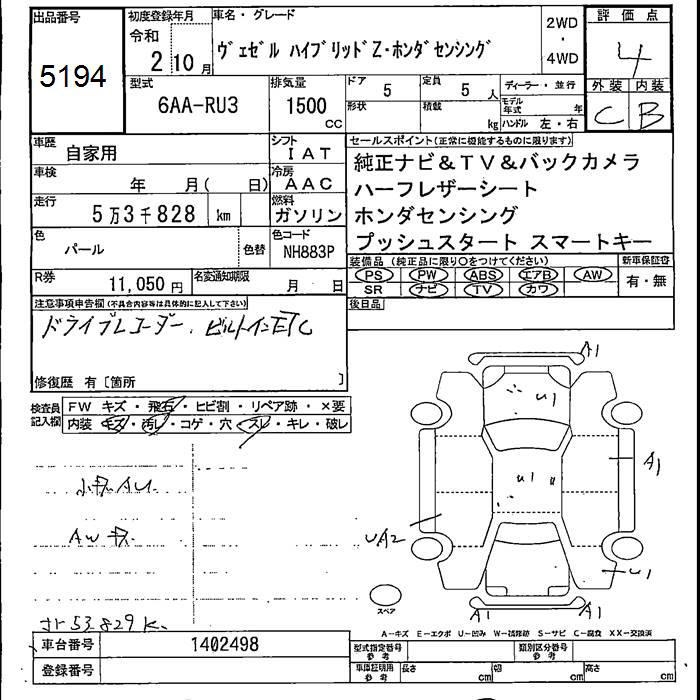 出品番号
5194
初度登録年月
令和
2 10 月
車名・グレード
ヴェゼル ハイブリッドZ・ホンダセンシング
2WD
・
4WD
評価点
4
外装 内装
C B
型式
6AA-RU3
排気量
1500
CC
ドア
5
定員
5 人
形状
積載
kg
ディーラー・並行
モデル年式 年
ハンドル 左・右
車歴
自家用
シフト
IAT
車検
年 月( 日)
冷房
AAC
走行
5万3千828 km
燃料
ガソリン
色
パール
色替
色コード
NH883P
R券
11,050 円
名変通知期限
月 日
セールスポイント(正常に機能するものに限ります)
純正ナビ&TV&バックカメラ
ハーフレザーシート
ホンダセンシング
プッシュスタート スマートキー
装備品 (純正品に限り○をつけてください)
新車保証書
PS PW ABS エアB AW
SR ナビ TV カワ
有・無
後日品
注意事項申告欄(不具合内容等は具体的に記入して下さい)
ドライブレコーダー、ビルトインETC
修復歴 有〔箇所 〕
検査員記入欄
FW キズ・飛石・ヒビ割・リペア跡・×要
内装 キズ・汚レ・コゲ・穴・スレ・キレ・破レ
小キズAU
AWキズ
53.829K
A1
U1
U1
A1
UA2
U1
A1 A1
スペア
A－キズ E－エクボ U－凹み W－補修跡 S－サビ C－腐食 XX－交換済
車台番号
1402498
登録番号
型式指定番号
参考
類別区分番号
参考
車庫証明用
参考
長さ cm 幅 cm 高さ cm